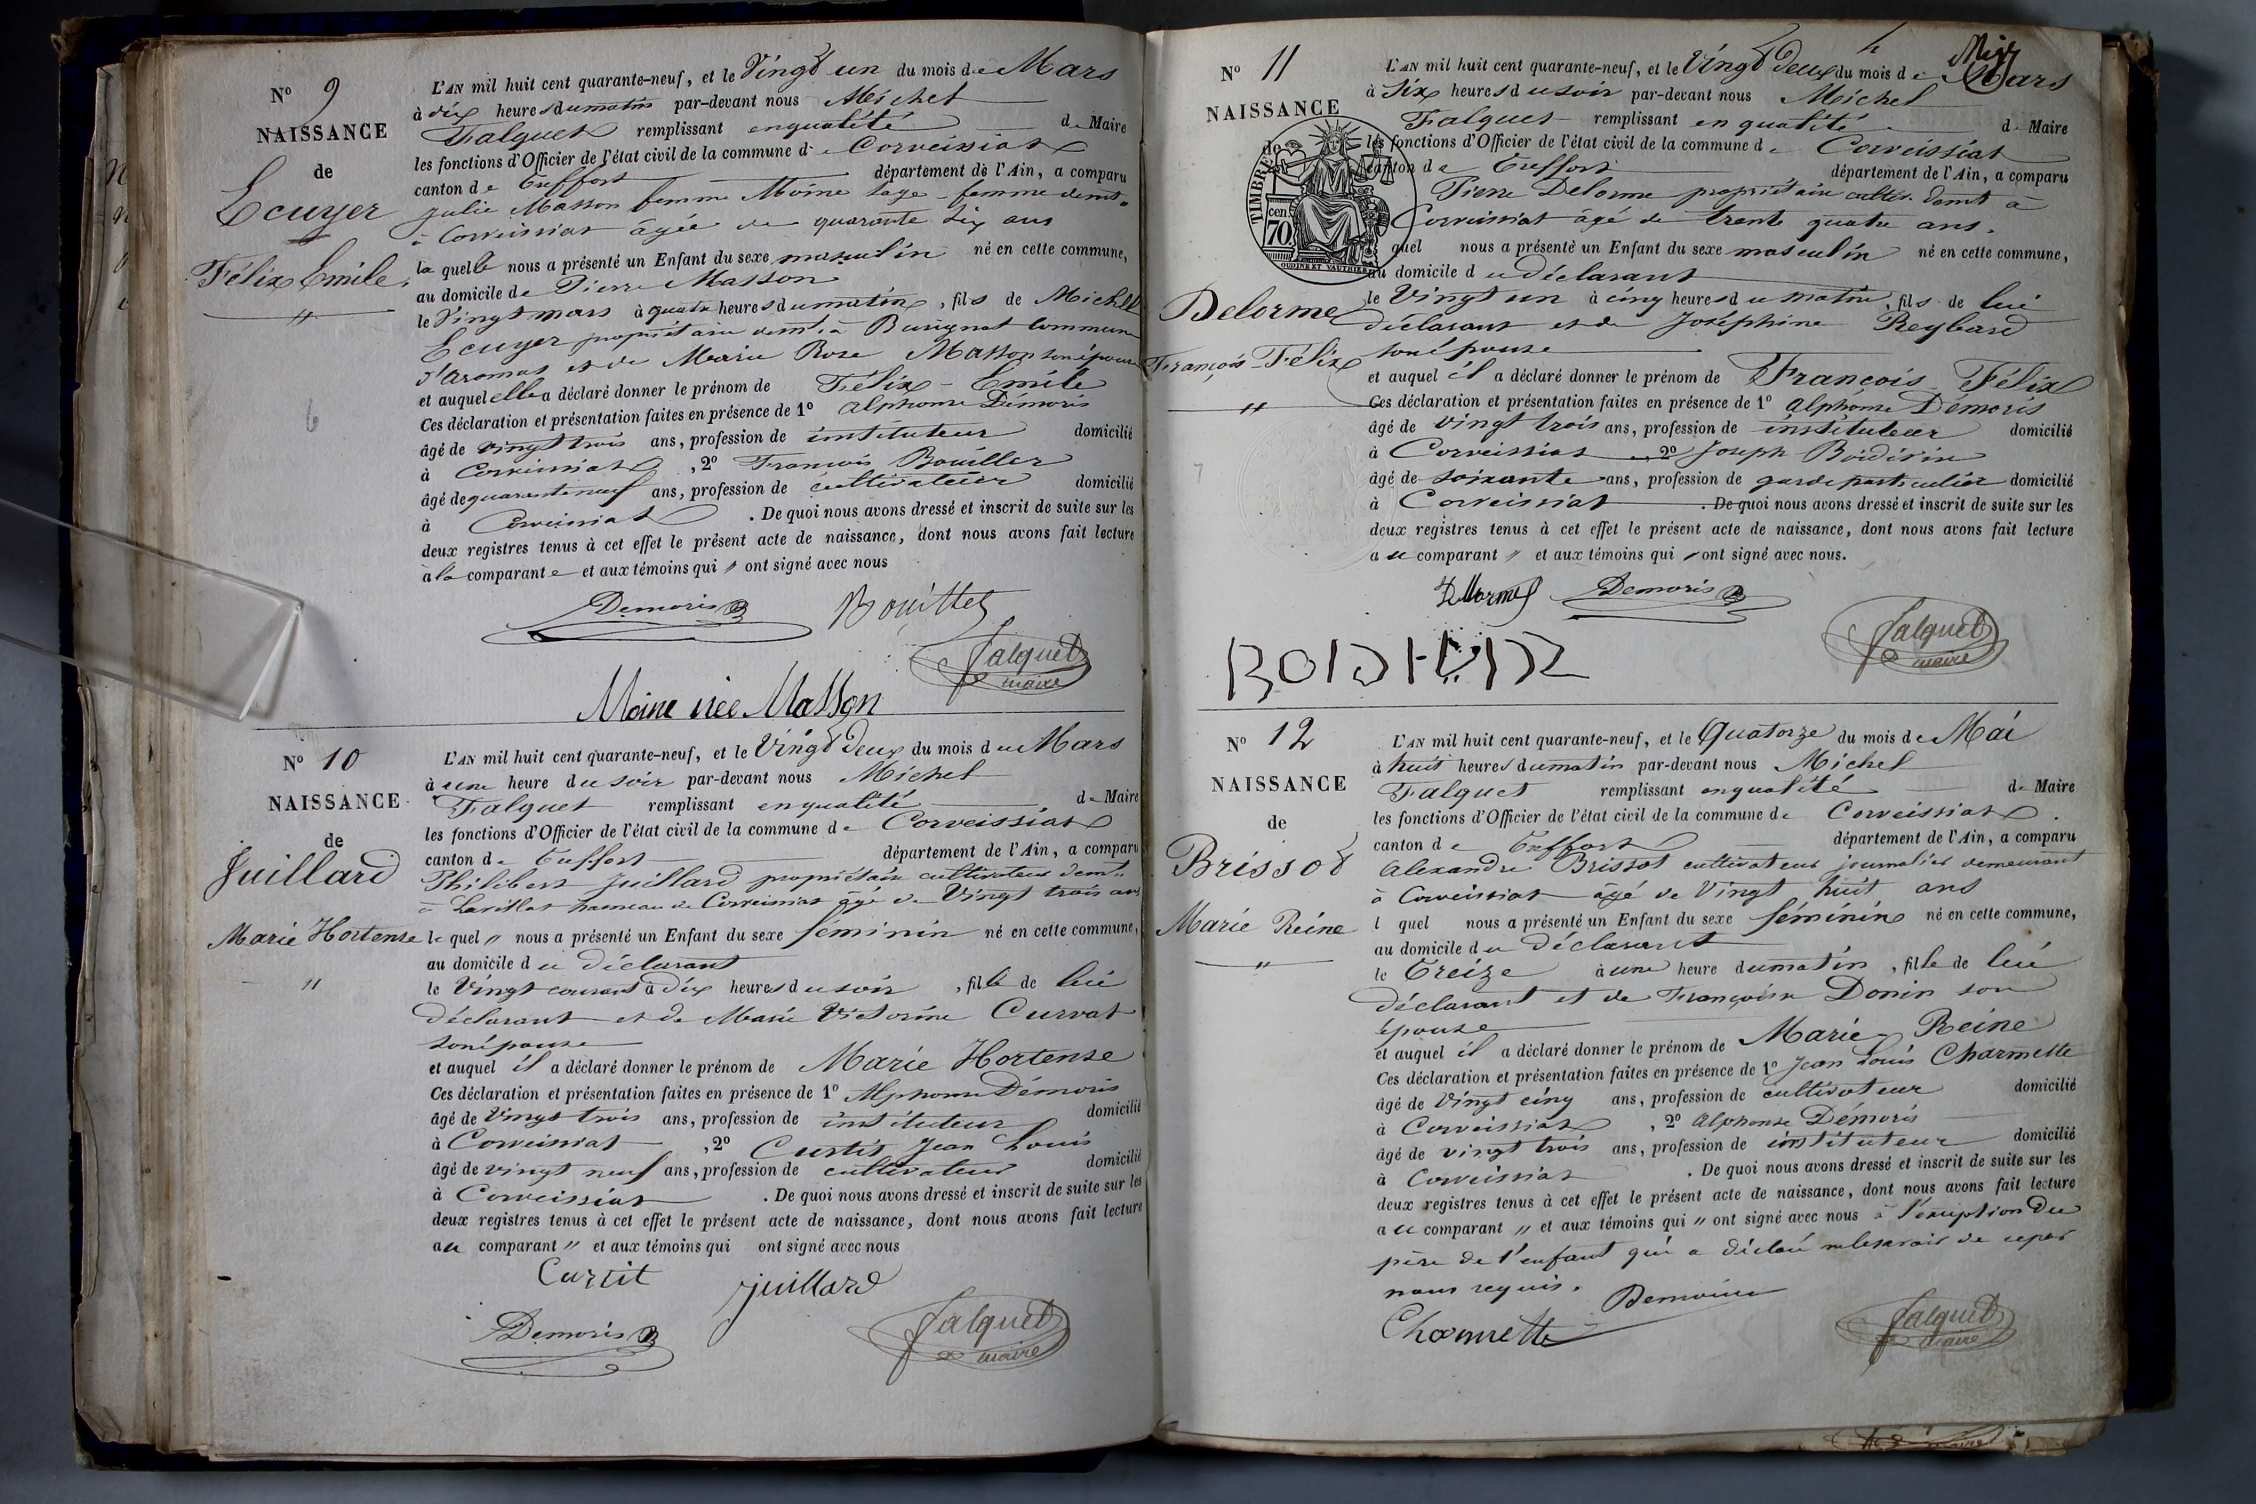 N° 9
NAISSANCE
de
Ecuyer
Félix Emile
"
6
L'AN mil huit cent quarante-neuf, et le Vingt un du mois de Mars
à dix heures du matin par-devant nous Michel
Falquet remplissant en qualité de Maire
les fonctions d'Officier de l'état civil de la commune de Corveissiat
canton de Treffort département de l'Ain, a comparu
Julie Masson femme Moine sage-femme demt.
à Corveissiat âgée de quarante six ans
la quelle nous a présenté un Enfant du sexe masculin né en cette commune,
au domicile de Pierre Masson
le Vingt mars à quatre heures du matin, fils de Michel
Ecuyer propriétaire demt. à Burignat Commune
d'Aromas et de Marie Rose Masson son épouse
et auquel elle a déclaré donner le prénom de Félix-Emile
Ces déclaration et présentation faites en présence de 1° Alphonse Démoris
âgé de vingt trois ans, profession de instituteur domicilié
à Corveissiat, 2° François Bouiller
âgé de quarante neuf ans, profession de cultivateur domicilié
à Corveissiat. De quoi nous avons dressé et inscrit de suite sur les
deux registres tenus à cet effet le présent acte de naissance, dont nous avons fait lecture
à la comparante et aux témoins qui " ont signé avec nous
Demoris Bouiller
Falquet
maire
Moine née Masson
N° 10
NAISSANCE
de
Juillard
Marie Hortense
"
L'AN mil huit cent quarante-neuf, et le Vingt Deux du mois de Mars
à une heure du soir par-devant nous Michel
Falquet remplissant en qualité de Maire
les fonctions d'Officier de l'état civil de la commune de Corveissiat
canton de Treffort département de l'Ain, a comparu
Philibert Juillard propriétaire cultivateur demt.
à Lavillat hameau de Corveissiat âgé de Vingt trois ans
le quel " nous a présenté un Enfant du sexe féminin né en cette commune,
au domicile du déclarant
le Vingt courant à dix heures du soir, fille de lui
déclarant et de Marie Victorine Curvat
son épouse
et auquel il a déclaré donner le prénom de Marie Hortense
Ces déclaration et présentation faites en présence de 1° Alphonse Démoris
âgé de Vingt trois ans, profession de instituteur domicilié
à Corveissiat, 2° Curtit Jean Louis
âgé de vingt neuf ans, profession de cultivateur domicilié
à Corveissiat. De quoi nous avons dressé et inscrit de suite sur les
deux registres tenus à cet effet le présent acte de naissance, dont nous avons fait lecture
au comparant " et aux témoins qui ont signé avec nous
Curtit Juillard
Demoris Falquet
maire
N° 11
NAISSANCE
de
TIMBRE
cen.
70
OUDINÉ ET VAUTHIER
Delorme
François-Félix
"
7
L'AN mil huit cent quarante-neuf, et le Vingt Deux du mois de Mars
à Six heures du soir par-devant nous Michel
Falquet remplissant en qualité de Maire
les fonctions d'Officier de l'état civil de la commune de Corveissiat
canton de Treffort département de l'Ain, a comparu
Pierre Delorme propriétaire cultivr. demt à
Corveissiat âgé de trente quatre ans.
quel nous a présenté un Enfant du sexe masculin né en cette commune,
au domicile du déclarant
le Vingt un à cinq heures du matin, fils de lui
déclarant et de Joséphine Reybard
son épouse
et auquel il a déclaré donner le prénom de François Félix
Ces déclaration et présentation faites en présence de 1° Alphonse Démoris
âgé de vingt trois ans, profession de instituteur domicilié
à Corveissiat, 2° Joseph
âgé de soixante ans, profession de garde particulier domicilié
à Corveissiat. De quoi nous avons dressé et inscrit de suite sur les
deux registres tenus à cet effet le présent acte de naissance, dont nous avons fait lecture
au comparant " et aux témoins qui " ont signé avec nous.
Delorme Demoris
Falquet
maire
N° 12
NAISSANCE
de
Brissot
Marie Reine
"
L'AN mil huit cent quarante-neuf, et le Quatorze du mois de Mai
à huit heures du matin par-devant nous Michel
Falquet remplissant en qualité de Maire
les fonctions d'Officier de l'état civil de la commune de Corveissiat
canton de Treffort département de l'Ain, a comparu
Alexandre Brissot cultivateur journalier demeurant
à Corveissiat âgé de Vingt huit ans
l quel nous a présenté un Enfant du sexe féminin né en cette commune,
au domicile du déclarant
le Treize à une heure du matin, fille de lui
déclarant et de Françoise Donin son
épouse
et auquel il a déclaré donner le prénom de Marie Reine
Ces déclaration et présentation faites en présence de 1° Jean Louis Charmette
âgé de Vingt cinq ans, profession de cultivateur domicilié
à Corveissiat, 2° Alphonse Démoris
âgé de vingt trois ans, profession de instituteur domicilié
à Corveissiat. De quoi nous avons dressé et inscrit de suite sur les
deux registres tenus à cet effet le présent acte de naissance, dont nous avons fait lecture
au comparant " et aux témoins qui " ont signé avec nous à l'exception du
père de l'enfant qui a déclaré ne le savoir de ce par
nous requis. Demoris
Charmette Falquet
maire